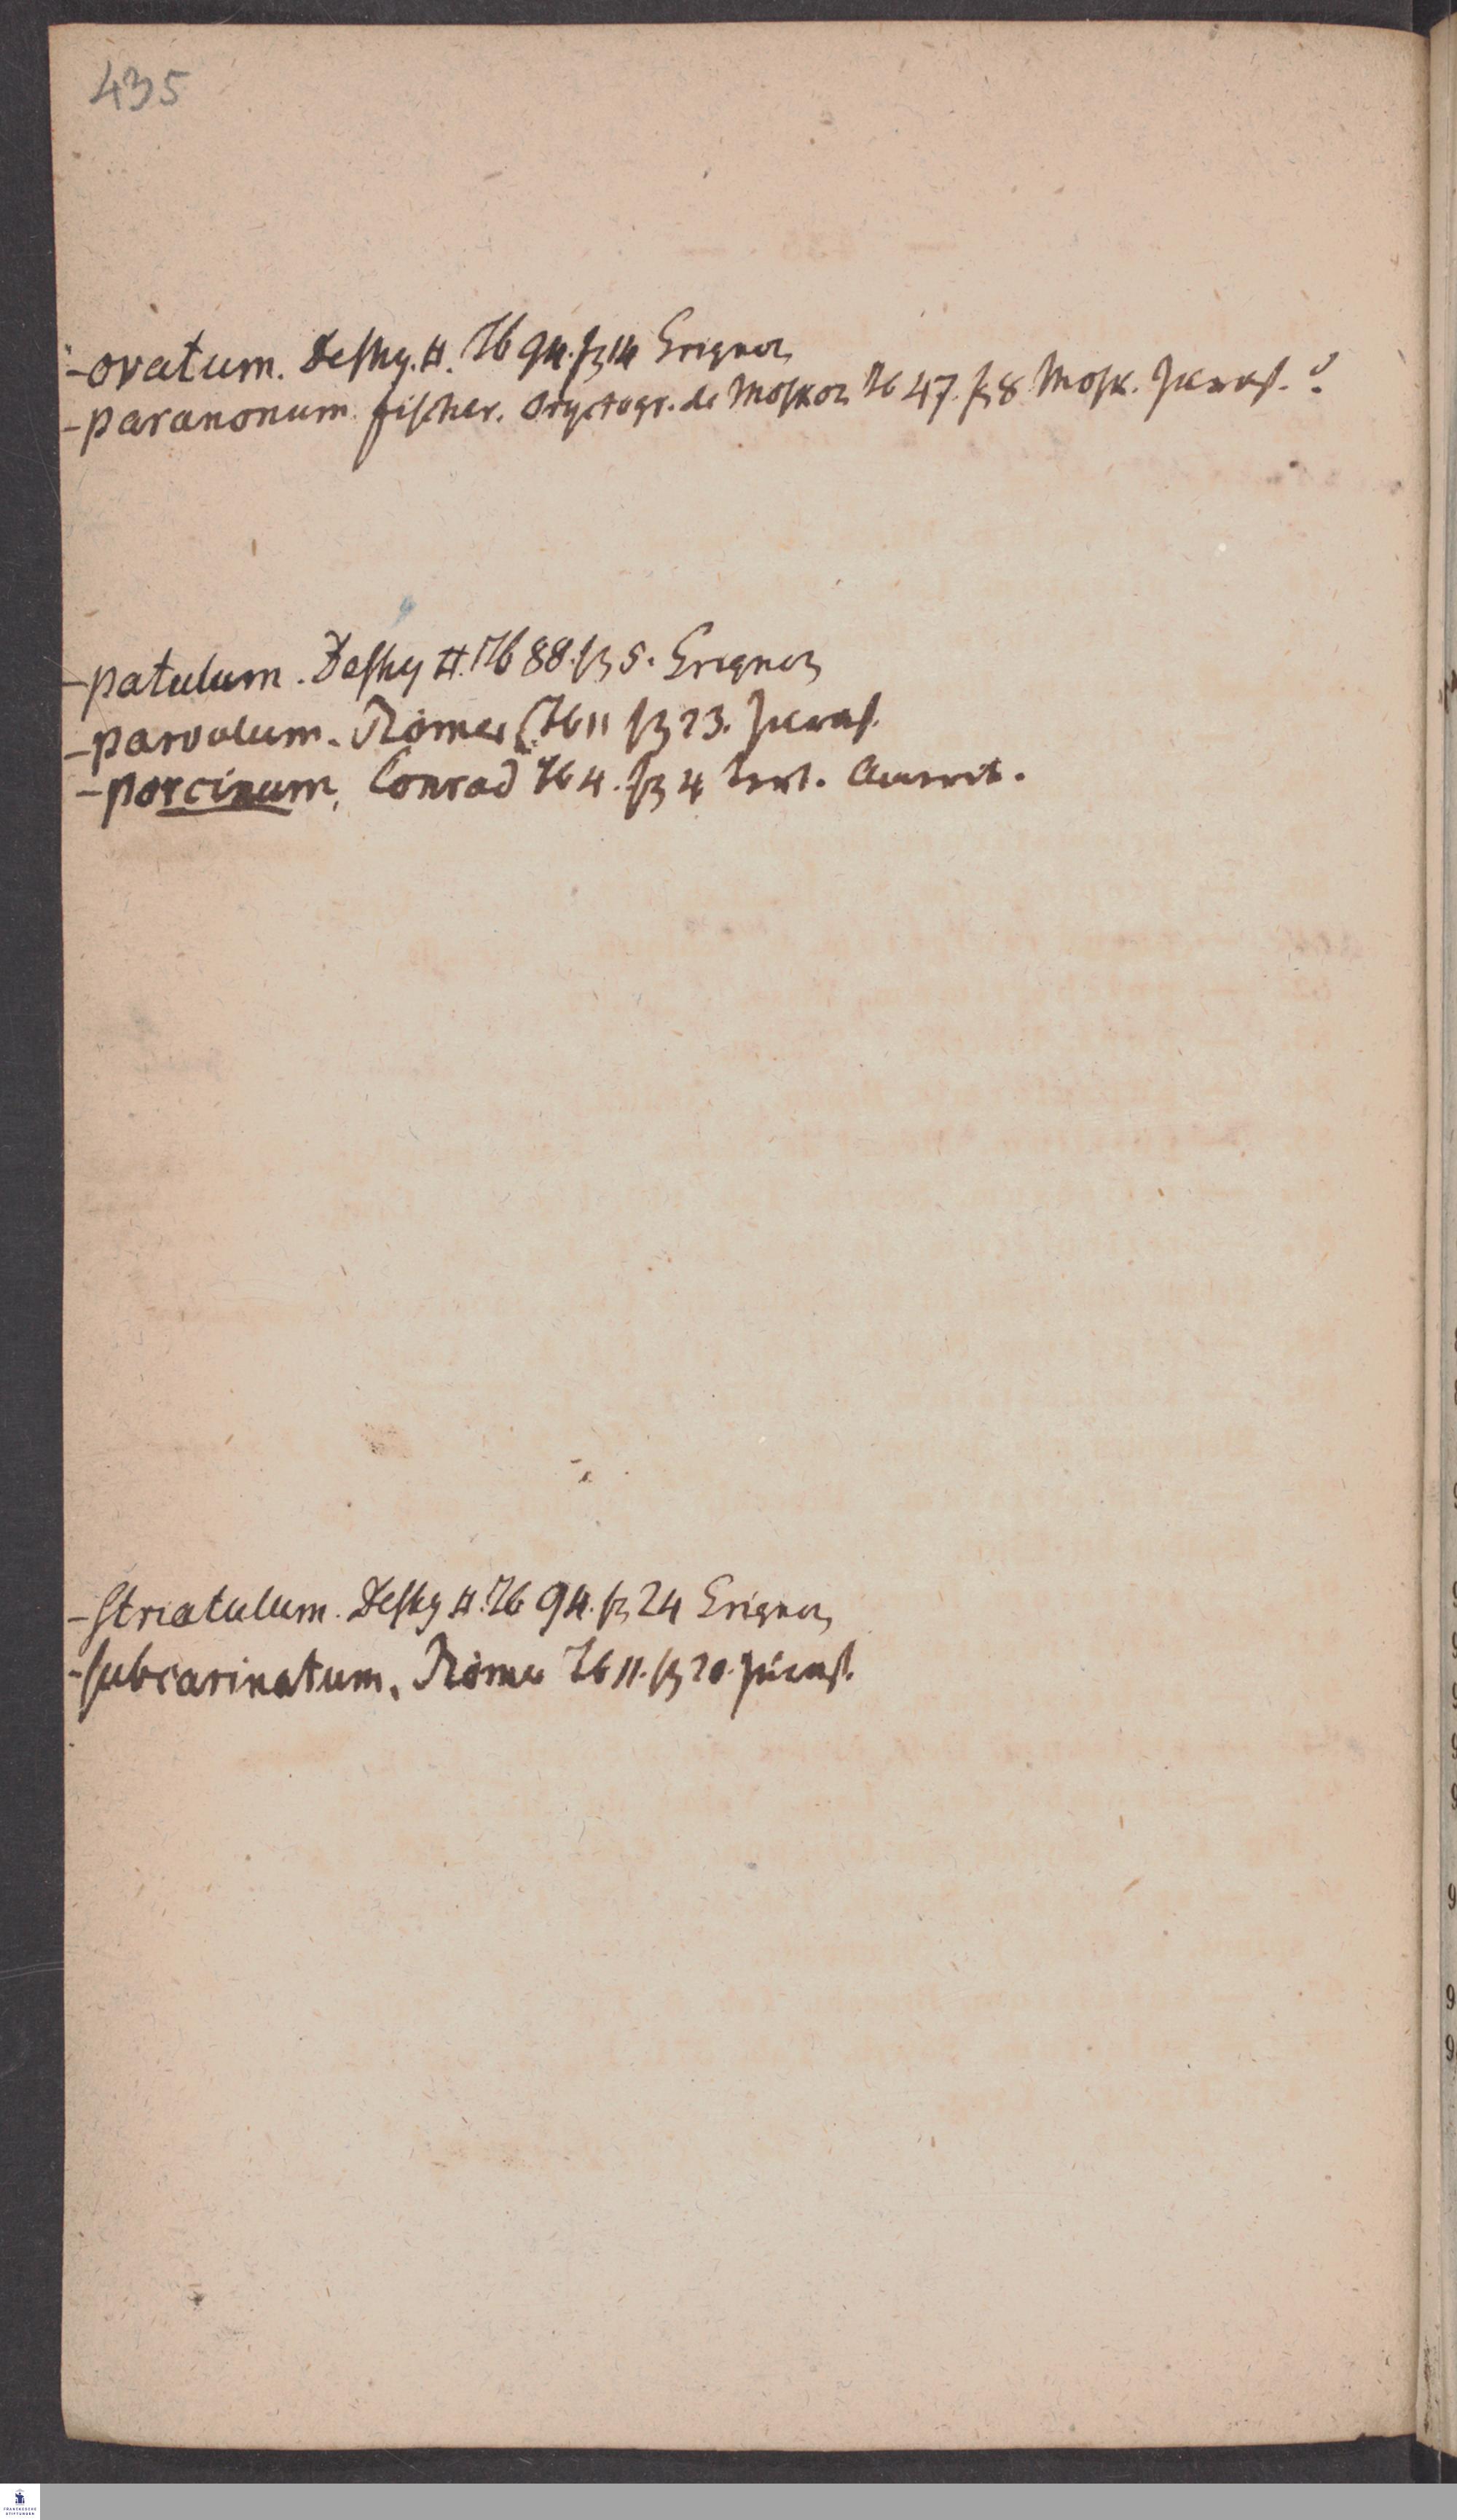 435
- ovatum. Deshy. II. Tb 94. fig 14 Grignon
- paranonum. Fischer. Oryctogr. de Moskou Tb 47. fig 8 Mosk. Jura
- patulum. Deshy II. Tb 88. fig 5. Grignon
- parvulum. Römer Tb 11 fig 23.
- porcinum, Conrad Tb 4. fig 4 tert. Amerik.
- striatulum. Deshy II. Tb 94. fig 24 Grignon
- subcarinatum. Römer Tb 11. fig 20.
FRANCKESCHE STIFTUNGEN